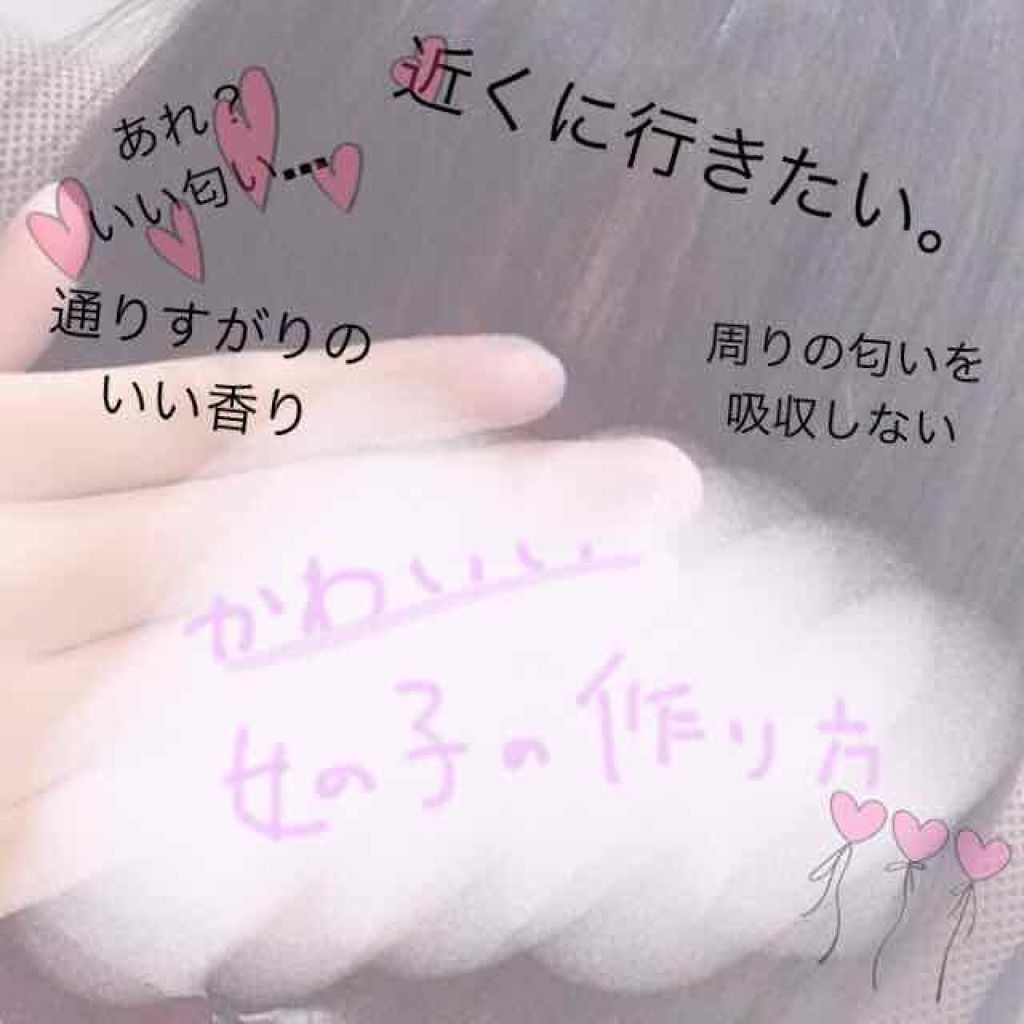 あれ?
いい匂い…
近くに行きたい。
通りすがりの
いい香り
周りの匂いを
吸収しない
かわいい
女の子の作り方